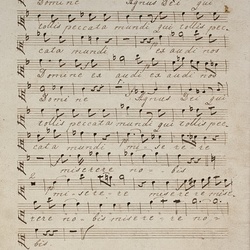 Domine Agnus Dei qui
tollis peccata mundi qui tollis pec-
cata mundi exaudi nos
Domine exaudi exaudi nos
Domine Agnus Dei qui
tollis peccata mundi qui tollis pec
cata mundi mi-se-re-re
miserere no--bis
mi-se-re-re miserere mise-
rere no-bis misere-re no-
bis